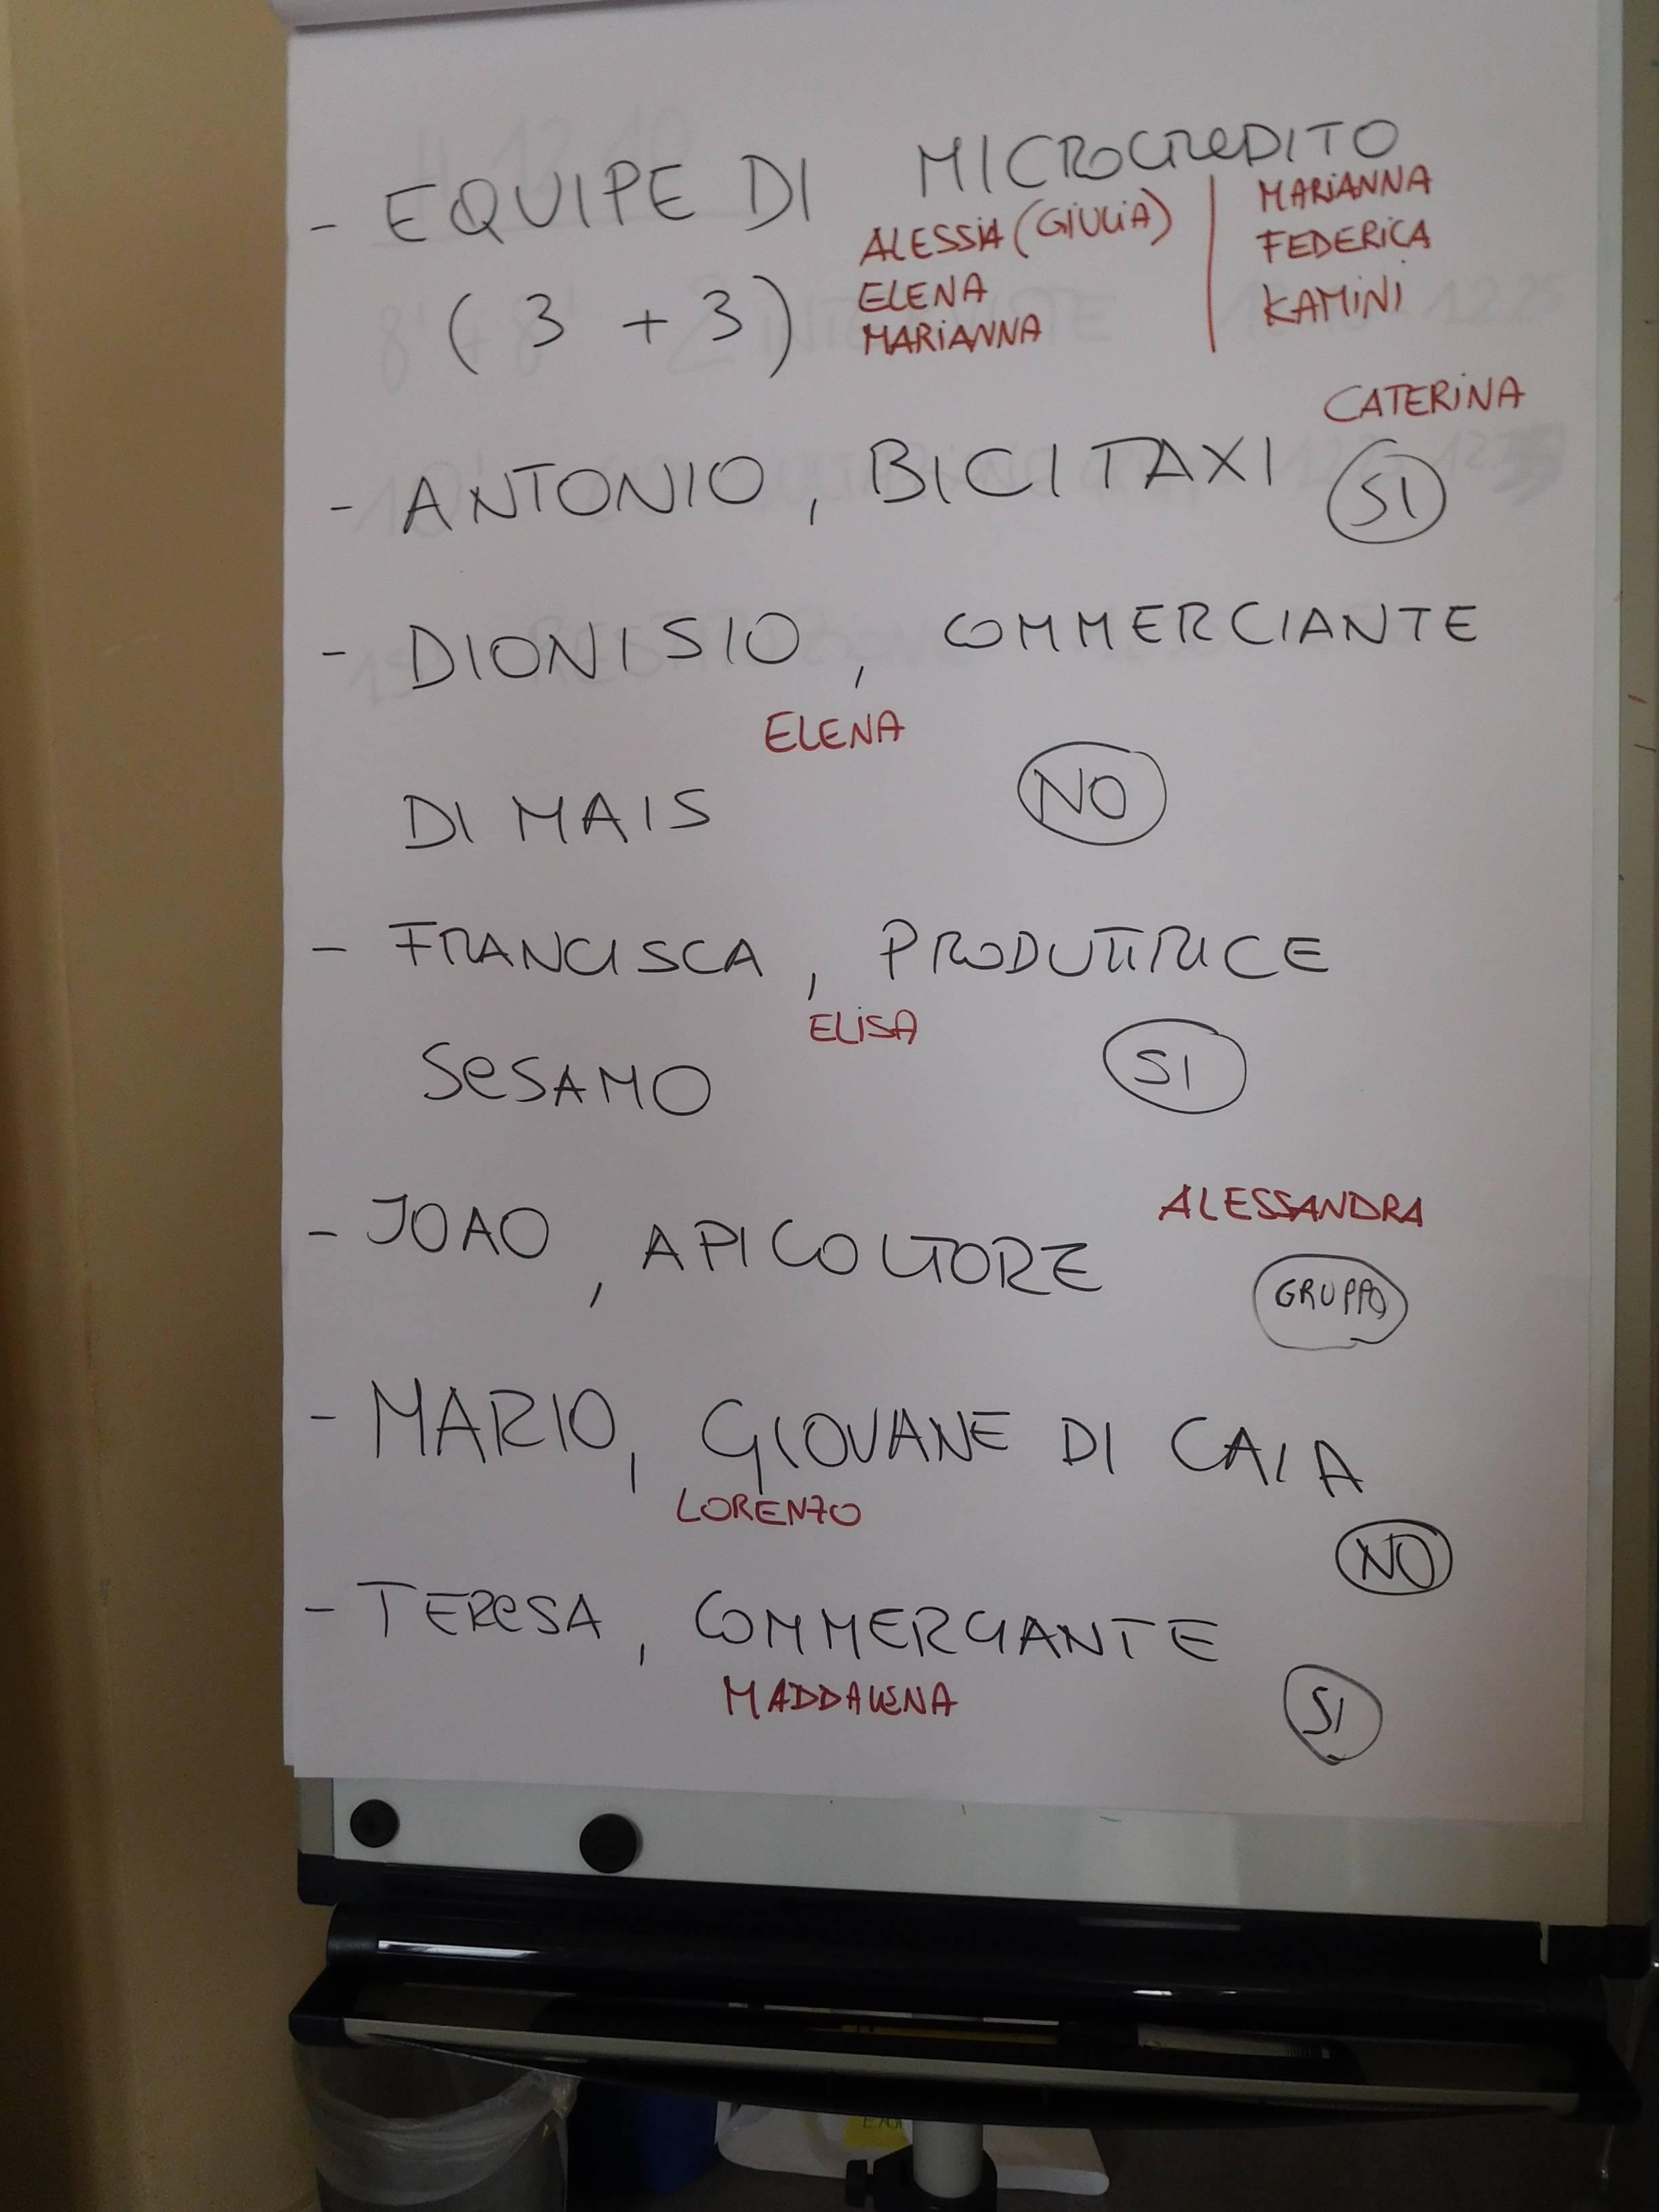 - EQUIPE DI MICROCREDITO
(3 + 3)
ALESSIA (GIULIA)
ELENA
MARIANNA
MARIANNA
FEDERICA
KAMINI
CATERINA
- ANTONIO, BICITAXI SI
- DIONISIO, COMMERCIANTE
ELENA
DI MAIS NO
- FRANCISCA, PRODUTTRICE
ELISA
SESAMO SI
ALESSANDRA
- JOAO, APICOLTORE
GRUPPO
- MARIO, GIOVANE DI CAIA
LORENZO
NO
- TERESA, COMMERCIANTE
MADDALENA
SI